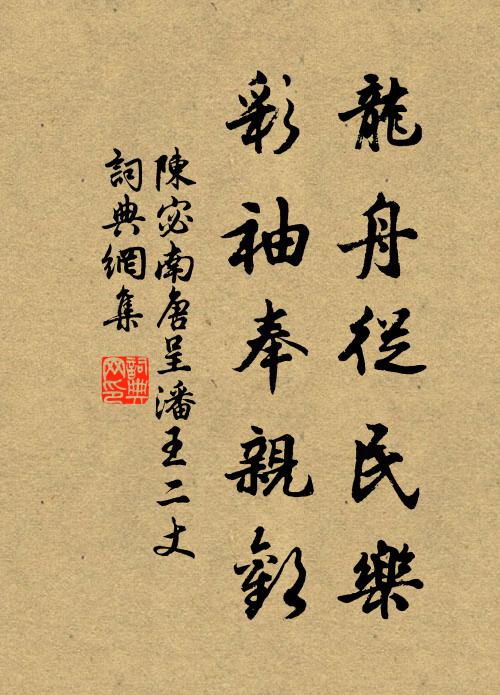 龍舟從民樂
彩袖奉親歡
陳宓南唐呈潘王二丈
詞典網集
詞典
网印